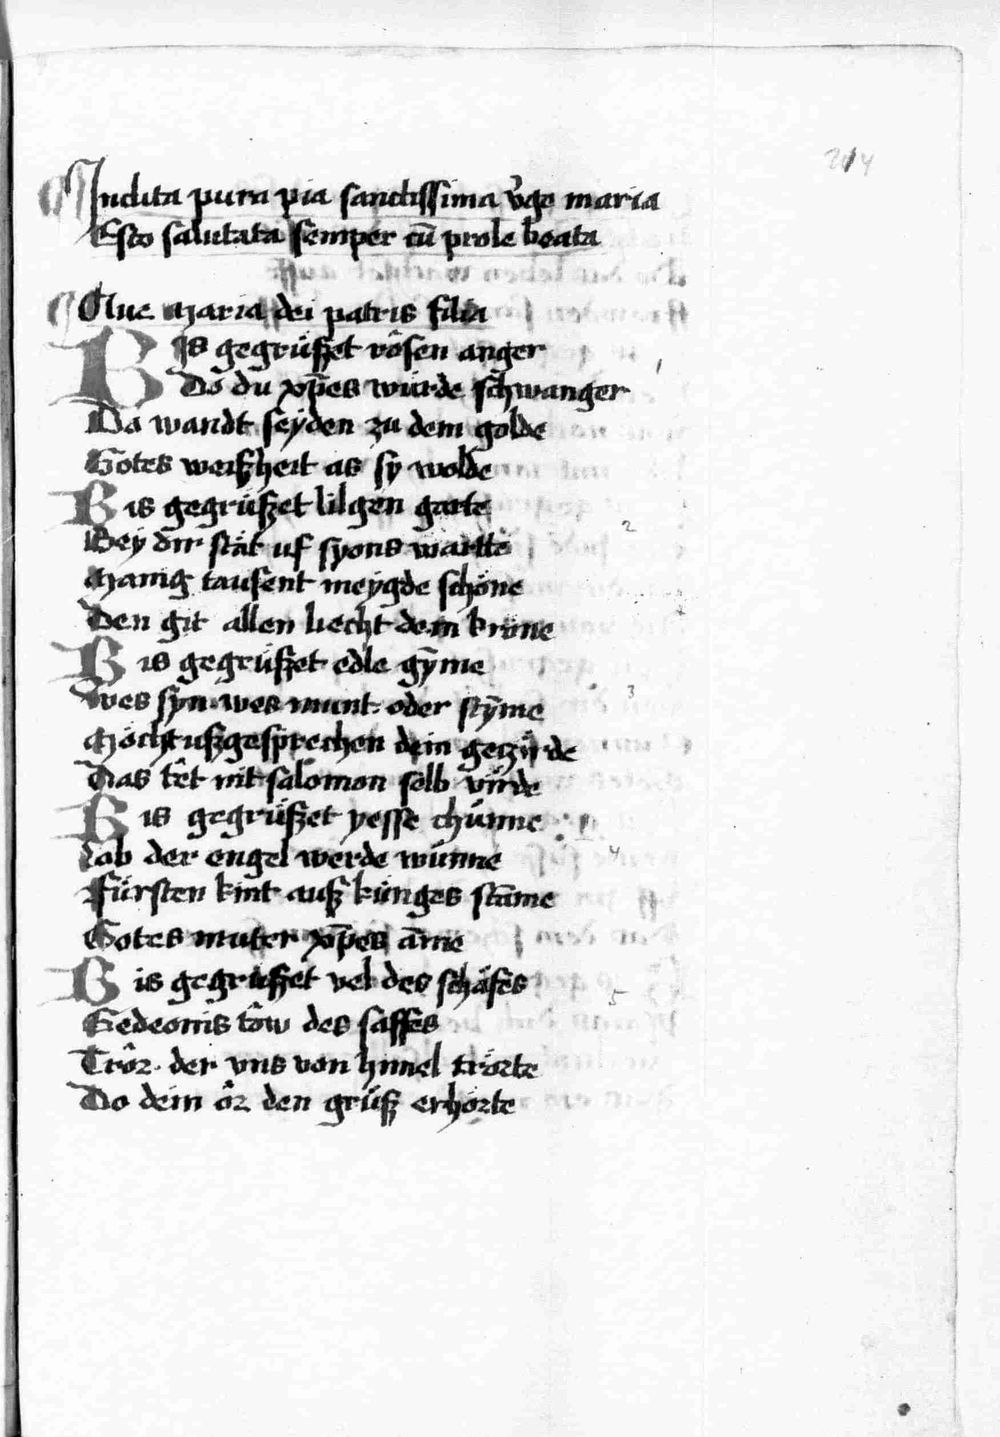 Inclita pura pia sanctissima v̉ge maria
Esto salutata semper cū prole beata
Aue maria dei patris filia
BIs gegrüßet rôsen anger
Do du xp̄es würde schwanger
Da wandt seyden zu dem golde
Gotes weißheit as sy wolde
Bis gegrüßet lilgen garte
Bey dir stät uf syons wartte
Manig tausent meygde schöne
Den git allen liecht dein kröne
Bis gegrüßet edle gȳme
Wes syn wes munt oder stȳme
Möcht ußgesprechen dein gezirde
Das têt nit salomon selb virde
Bis gegrüßet yesse chünne
Lob der engel werde wünne
Fürsten kint auß künges stāme
Gotes muter xp̄es āme
Bis gegrüßet vel des schäfes
Gedeonis tôw des saffes
Trôr der vns von himel trörte
Do dein ôr den grüß erhörte